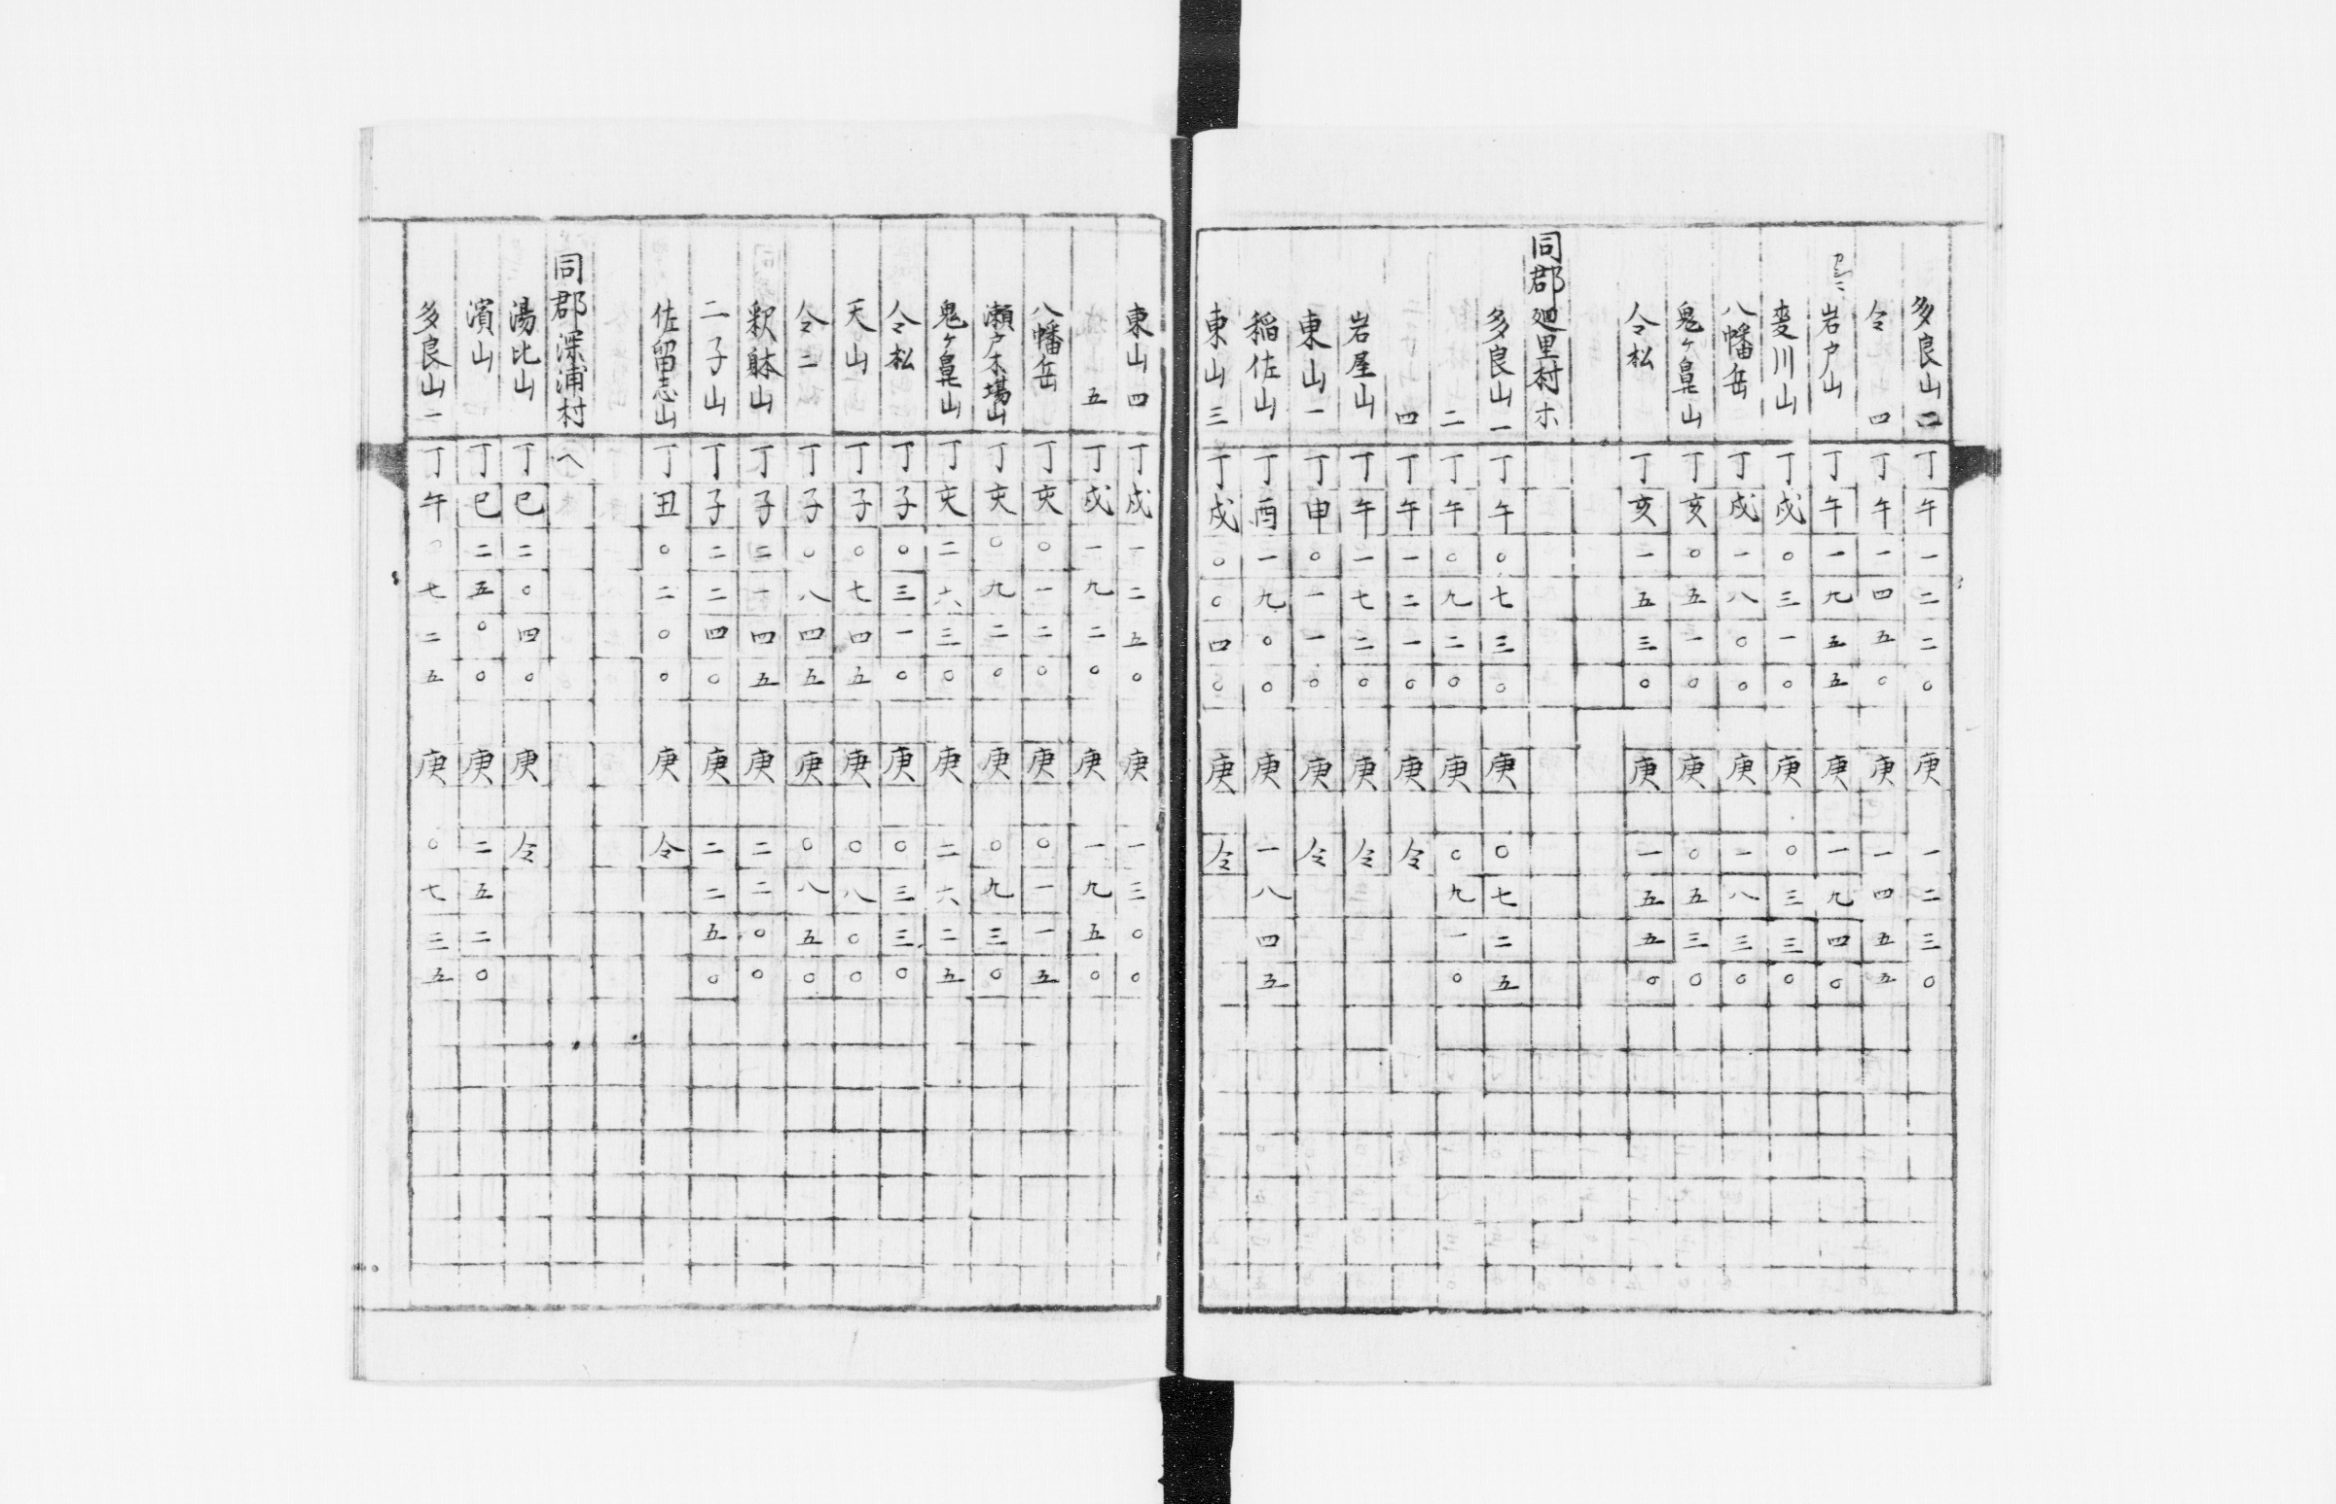 多良山二 丁午一二二〇 庚 一二三〇
仝 四 丁午一四五〇 庚 一四五五
岩戸山 丁午一九五五 庚 一九四〇
変川山 丁戌〇三一〇 庚 〇三三〇
八幡岳 丁戌一八〇〇 庚 一八三〇
鬼ヶ鼻山 丁亥〇五一〇 庚 〇五三〇
仝松 丁亥一五三〇 庚 一五五〇
同郡廻里村ホ
多良山一 丁午〇七三〇 庚 〇七二五
二 丁午〇九二〇 庚 〇九一〇
四 丁午一二一〇 庚 仝
岩屋山 丁午一七二〇 庚 仝
東山一 丁申〇一一〇 庚 仝
稲佐山 丁酉一九〇〇 庚 一八四五
東山三 丁戌〇〇四〇 庚 仝
東山四 丁戌一二五〇 庚 一三〇〇
五 丁戌一九二〇 庚 一九五〇
八幡岳 丁亥〇一二〇 庚 〇一一五
瀬戸木場山 丁亥〇九二〇 庚 〇九三〇
鬼ヶ鼻山 丁亥二六三〇 庚 二六二五
仝松 丁子〇三一〇 庚 〇三三〇
天山 丁子〇七四五 庚 〇八〇〇
仝二 丁子〇八四五 庚 〇八五〇
釈躰山 丁子二一四五 庚 二二〇〇
二子山 丁子二二四〇 庚 二二五〇
佐留志山 丁丑〇二〇〇 庚 仝
同郡深浦村 ヘ
湯比山 丁巳二〇四〇 庚 仝
濱山 丁巳二五〇〇 庚 二五二〇
多良山一 丁午〇七二五 庚 〇七三五